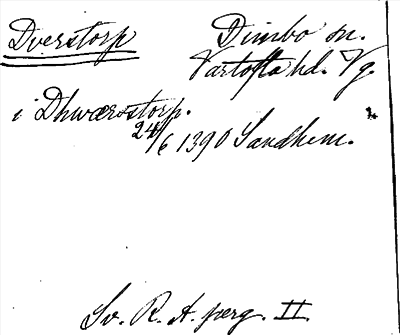 Dverstorp Dimbo sn.
Vartofta hd. Vg.
i Dhwærstorp.
24/6 1390 Sandhem.
Sv. R. A. perg. II.